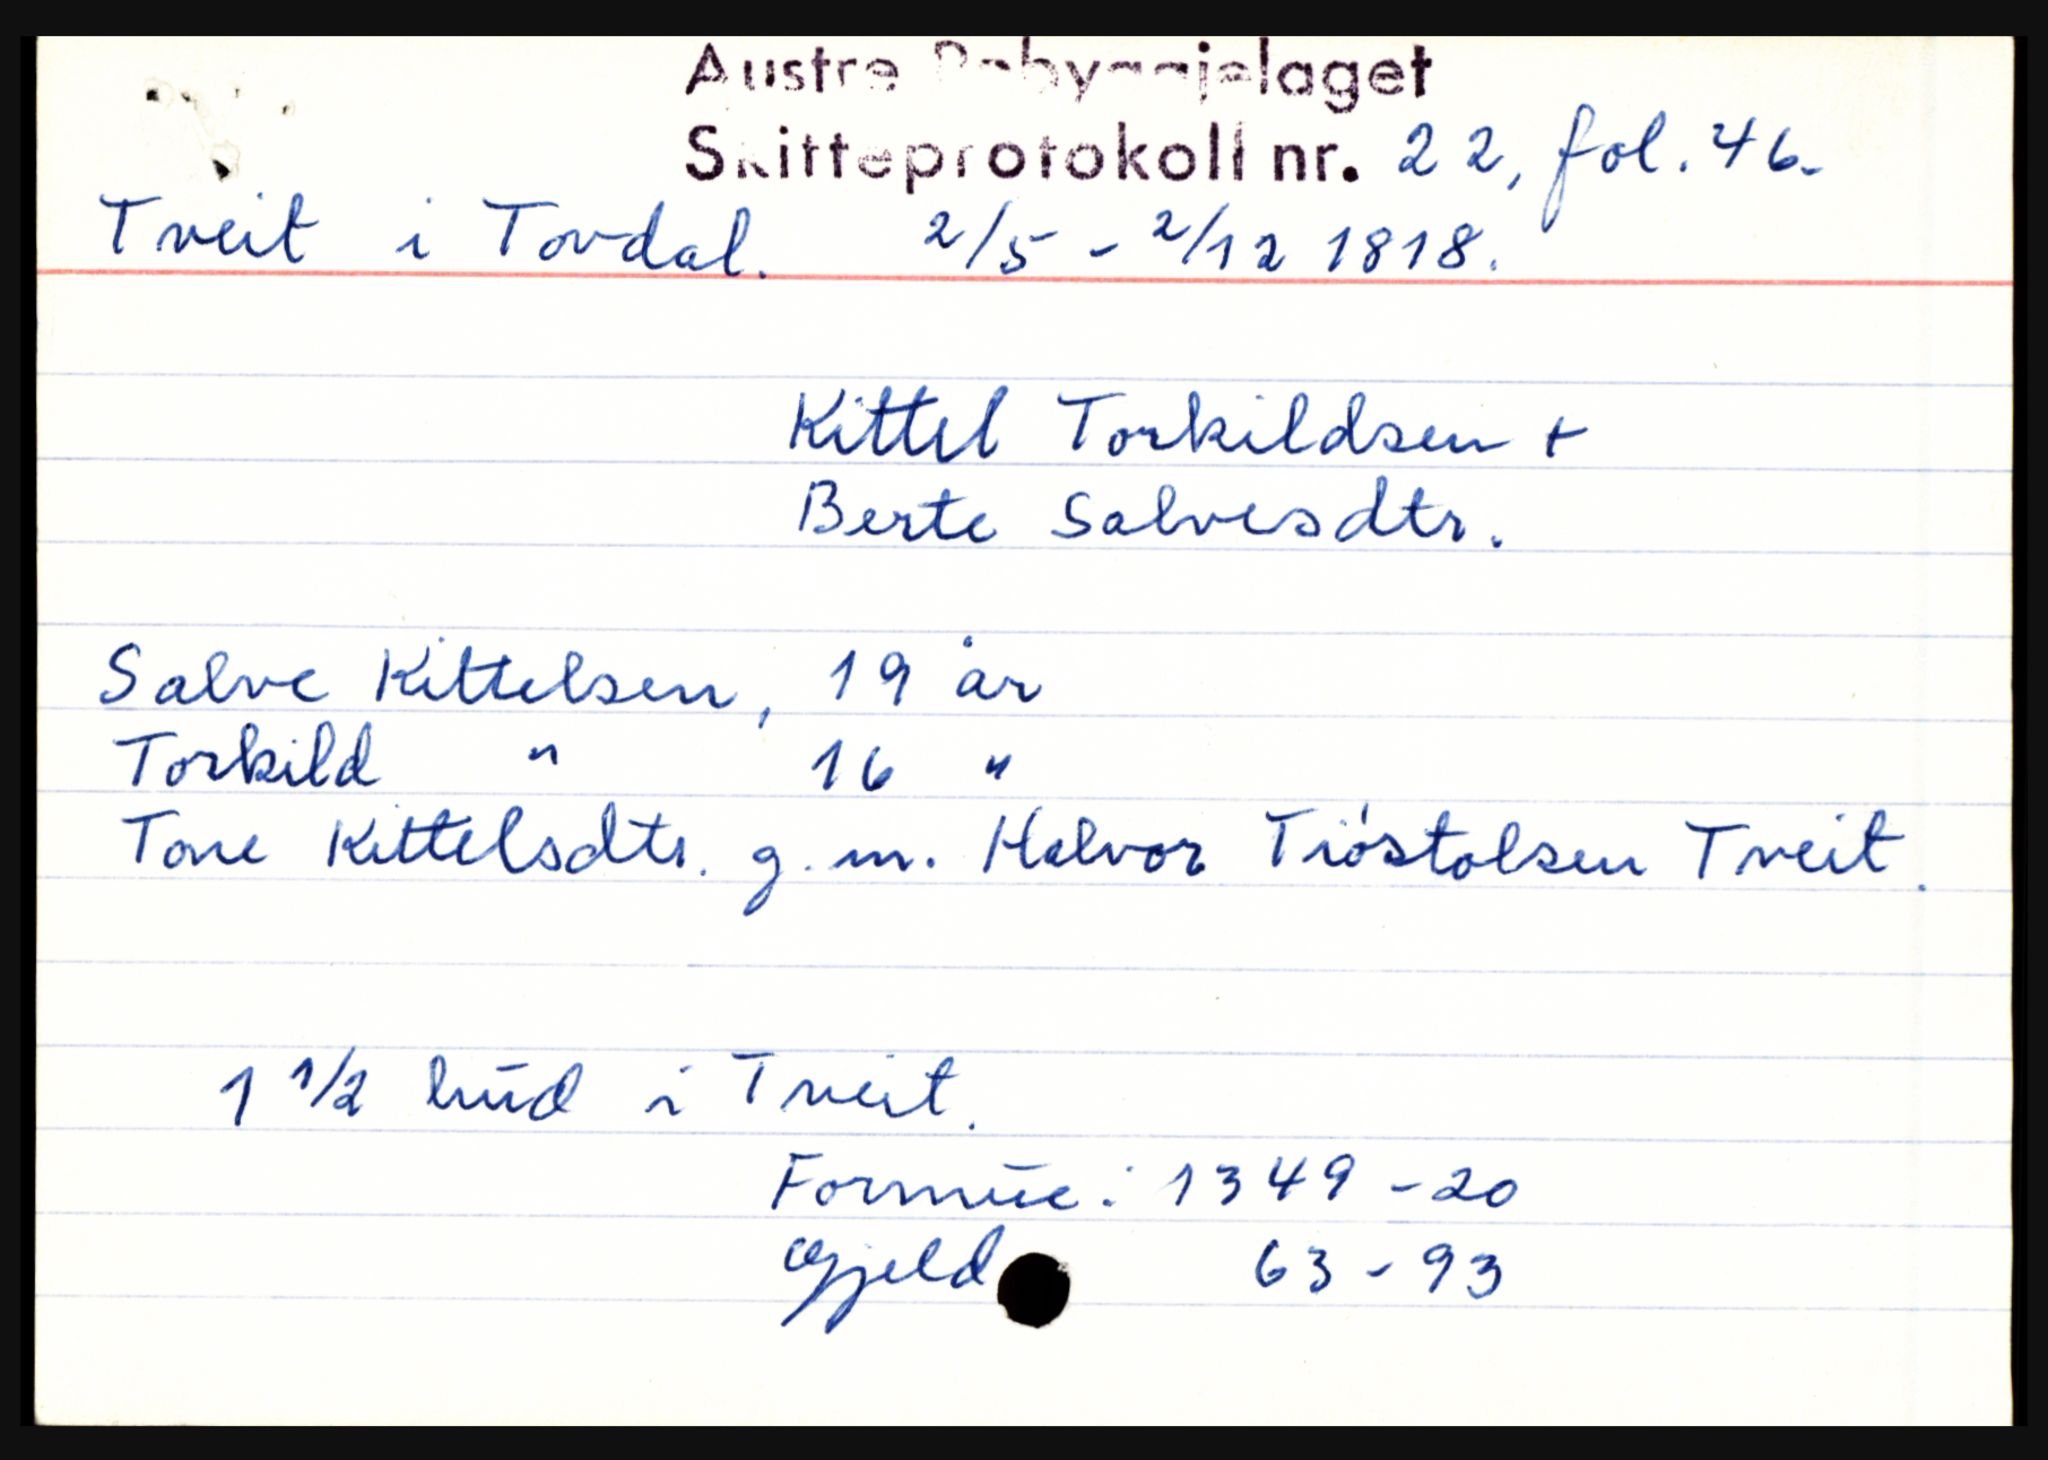 Austre Robyggjelaget
Skifteprotokoll nr. 22, fol. 46.
Tveit i Tovdal. 2/5 - 2/12 1818.
Kittel Torkildsen +
Berte Salvesdtr.
Salve Kittelsen, 19 år
Torkild " 16 "
Tone Kittelsdtr. g.m. Halvor Tióstolsen Tveit.
1 1/2 hud i Tveit.
Formue: 1349 - 20
Gjeld 63 - 93